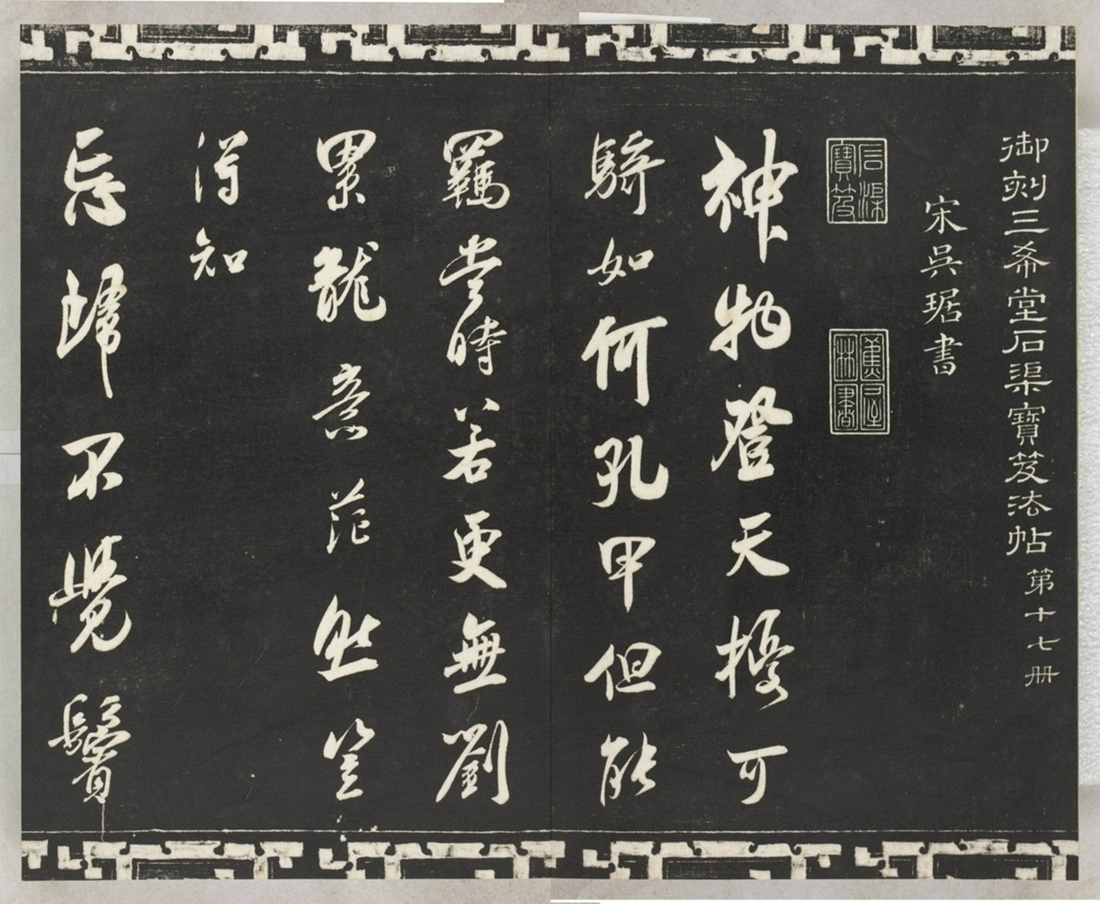 御刻三希堂石渠寶笈法帖 第十七册
宋吳琚書
石渠寶笈
蕉林書屋
神物登天擾可
騎如何孔甲但能
羈當時若更無劉
累龍意茫然豈
得知
忘歸不覺鬢